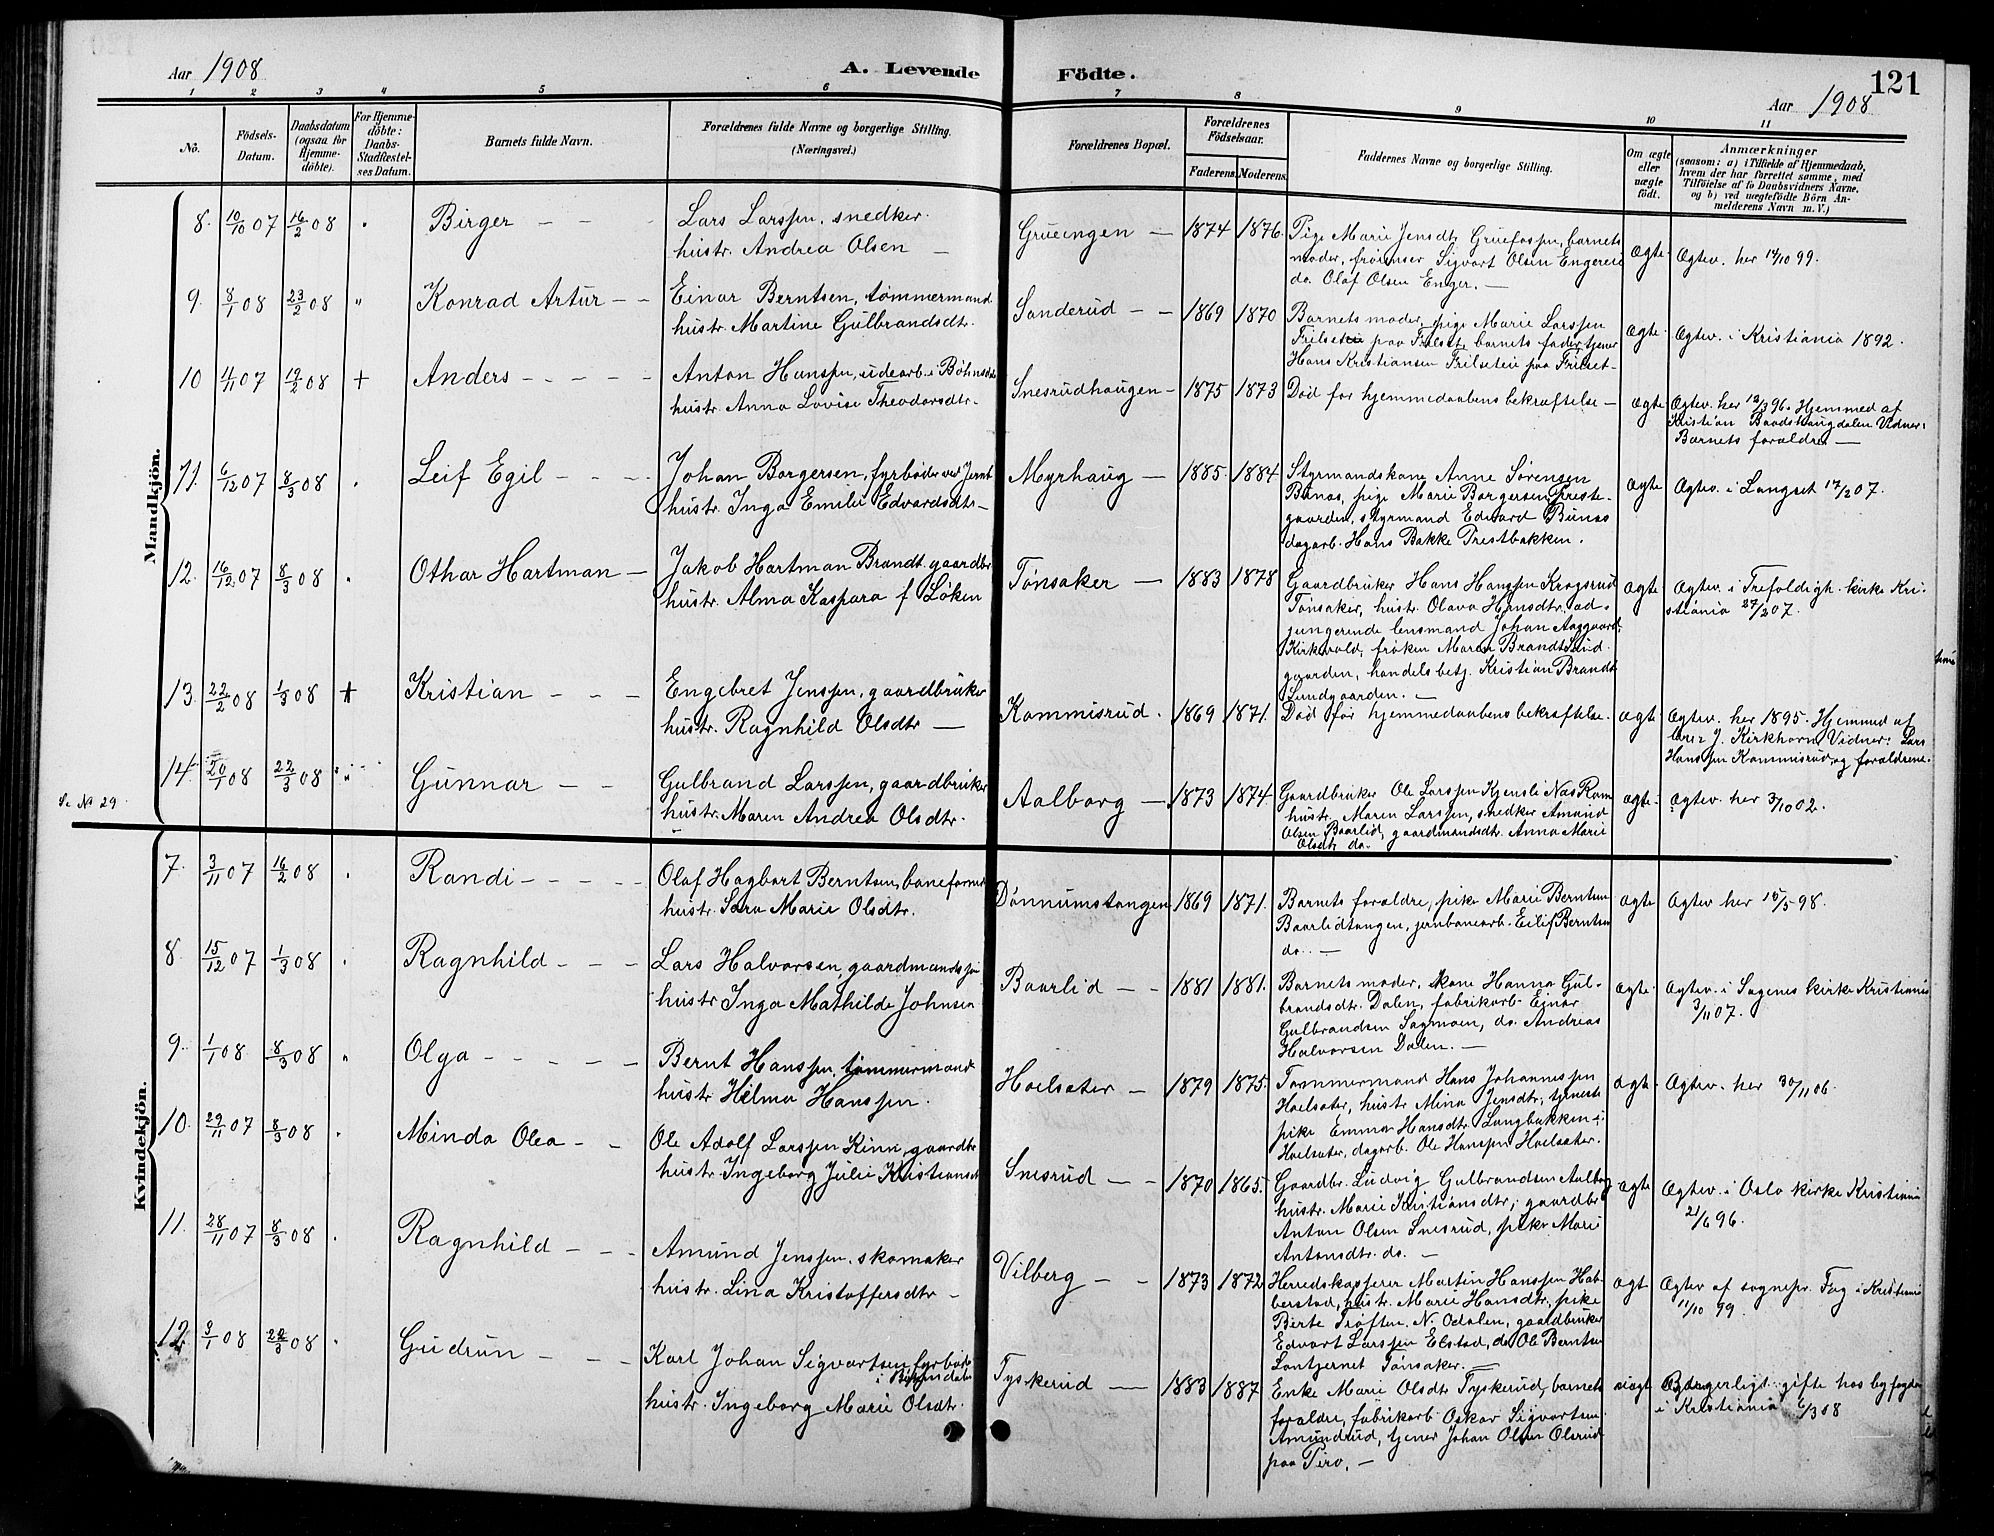 Aar 1908
A. Levende Födte.
121
Aar 1908
1 2 3 4 5 6 7 8 9 10 11
No.
Födsels-
Datum.
Daabsdatum
(ogsaa for
Hjemme-
döbte).
For Hjemme-
döbte:
Daabs-
Stadfestel-
ses Datum.
Barnets fulde Navn.
Forældrenes fulde Navne og borgerlige Stilling.
(Næringsvei.)
Forældrenes Bopæl.
Forældrenes
Födselsaar.
Faderens. Moderens.
Faddernes Navne og borgerlige Stilling.
Om ægte
eller
uægte
født.
Anmærkninger
(saasom: a) i Tilfælde af Hjemmedaab,
hvem der har forrettet samme, med
Tilföielse af to Daabsvidners Navne.
og b) ved uægtefödte Börn An-
melderens Navn m. V.)
Mandkjön.
8. 10/10 07 16/2 08 Birger
Lars Larssen, snedker.
hustr. Andrea Olsen
Grueengen 1874 1876
Pige Marie Jensdtr. Gruefossen, barnets
moder, Sigvart Olsen Engereie
do. Olaf Olsen Enger.
ægte. Ægtev. her 14/10 99.
9. 8/1 08 23/2 08 " Konrad Artur
Einar Berntsen, tømmermand
hustr. Martine Gulbrandsdtr.
Sanderud 1869 1870
Barnets moder, pige Marie Larssen
Frilseteie paa Frilset, barnets fader, tjener
Hans Kristiansen Frilseteie paa Frilset
ægte. Ægtev. i Kristiania 1892.
10 11/11 07 19/2 08 + Anders
Anton Hanssen, udearb. i Bøhnsdal
hustr. Anna Lovise Theodorsdtr.
Snesrudhaugen 1875 1873
Død før hjemmedaabens bekræftelse
ægte Ægtev. her 12/3 96. Hjemmed. af
Kristian Baadshaugdalen Vidner:
Barnets forældre
11. 6/12 07 8/3 08 Leif Egil
Johan Borgersen, fyrbøder ved Jernb.
hustr. Inga Emilie Edvardsdtr.
Myrhaug 1885. 1884
Styrmandskone Anne Sørensen
Bunæs, pige Marie Borgersen Preste-
gaarden, styrmand Edvard Bunæs
dagarb. Hans Bakke Prestbakken.
ægte Ægtev. i Langset 17/2 07.
12. 16/12 07 8/3 08 Othar Hartman
Jakob Hartman Brandt gaardbr
hustr. Alma Kaspara f. Løken
Tønsaker 1883 1878
Gaardbruker Hans Hanssen Krogsrud
Tønsaker, hustr. Olava Hansdtr. ad-
jungerende lensmand Johan Aaggaard,
Kirkevold, frøken Maren Brandt Lund-
gaarden, handelsbetj. Kristian Brandt
Lundgaarden.
ægte Ægtev. i Trefoldigh. kirke Kri-
stiania 27/2 07.
13. 22/2 08 1/3 08 + Kristian
Engebret Jenssen, gaardbruker
hustr. Ragnhild Olsdtr
Kommisrud. 1869 1871.
Død før hjemmedaabens bekræftelse.
ægte Ægtev. her 1895. Hjemmed. af
J. Kirkhorn Vidner: Lars
Hanssen Kommisrud og forældrene.
14. 20/1 08 22/3 08 Gunnar
Se No 29
Gulbrand Larssen, gaardbruker
hustr. Maren Andrea Olsdtr.
Aalborg 1873 1874
Gaardbruker Ole Larssen Kjensli Næs Rom.
hustr. Maren Larssen, snedker Amund
Olsen Baarlid, gaardmandsdtr. Anna Marie
Olsdtr do.
ægte. Ægtev. her 3/10 02.
Kvindekjön.
7. 3/11 07 16/2 08 Randi
Olaf Hagbart Berntsen, baneformd
hustr. Sara Marie Olsdtr.
Dønnumstangen 1869 1871.
Barnets forældre, pike Marie Berntsen
Baarlidtangen, jernbanearb. Eilif Berntsen
do.
ægte Ægtev her 15/5 98.
8. 15/12 07 1/3 08 Ragnhild
Lars Halvorsen, gaardmandssøn
hustr Inga Mathilde Johnsen
Baarlid 1881 1881.
Barnets moder, kone Hanna Gul-
brandsdtr. Dalen, fabrikarb. Einar
Gulbrandsen Sagmoen, do. Andreas
Halvorsen Dalen.
ægte. Ægtev. i Sagenes kirke Kristiania
3/11 07.
9. 1/1 08 8/3 08 " Olga
Bernt Hanssen, tømmermand
hustr Hilma Hanssen.
Hoelsæter 1879 1875.
Tømmermand Hans Johannessen
Hoelsæter, hustr Mina Jensdtr, tjeneste-
pike Emma Hansdtr. Langbakken i
Hoelsæter, dagarb. Ole Hanssen Hoelsæter.
ægte. Ægtev. her 30/11 06.
10. 29/11 07 8/3 08 Minda Olea
Ole Adolf Larssen Kinn, gaardbr
hustr. Ingeborg Julie Kristiansdt
Snesrud 1870 1865.
Gaardbr. Ludvig Gulbrandsen Aalborg
hustr. Marie Kristiansdtr; gaardbr
Anton Olsen Snesrud, pike Marie
Antonsdtr. do.
ægte Ægtev. i Oslo kirke Kristiania
21/6 96.
11. 28/11 07 8/3 08 Ragnhild
Amund Jenssen, skomaker
hustr. Lina Kristoffersdtr
Vilberg 1873 1872
Herredskasserer Martin Hanssen Hab-
berstad, hustr. Marie Hansdtr, pike
Birte Trøften. N. Odalen, gaardbruker
Edvart Larssen Elstad, do Ole Berntsen
Lontjernet Tønsaker.
ægt Ægtev af sognepr. Fag i Kristiania
11/10 99.
12. 9/1 08 22/3 08 Gudrun
Karl Johan Sigvartsen, fyrbøder
i Bøhnsdalen
hustr. Ingeborg Marie Olsdtr.
Tyskerud 1883 1887
Enke Marie Olsdtr Tyskerud, barnets
forældre, fabrikarb. Oskar Sigvartsen
Amundrud, tjener Johan Olsen Olsrud
paa Tiro.
uægt Borgerligt gifte hos byfogden
i Kristiania 6/3 08